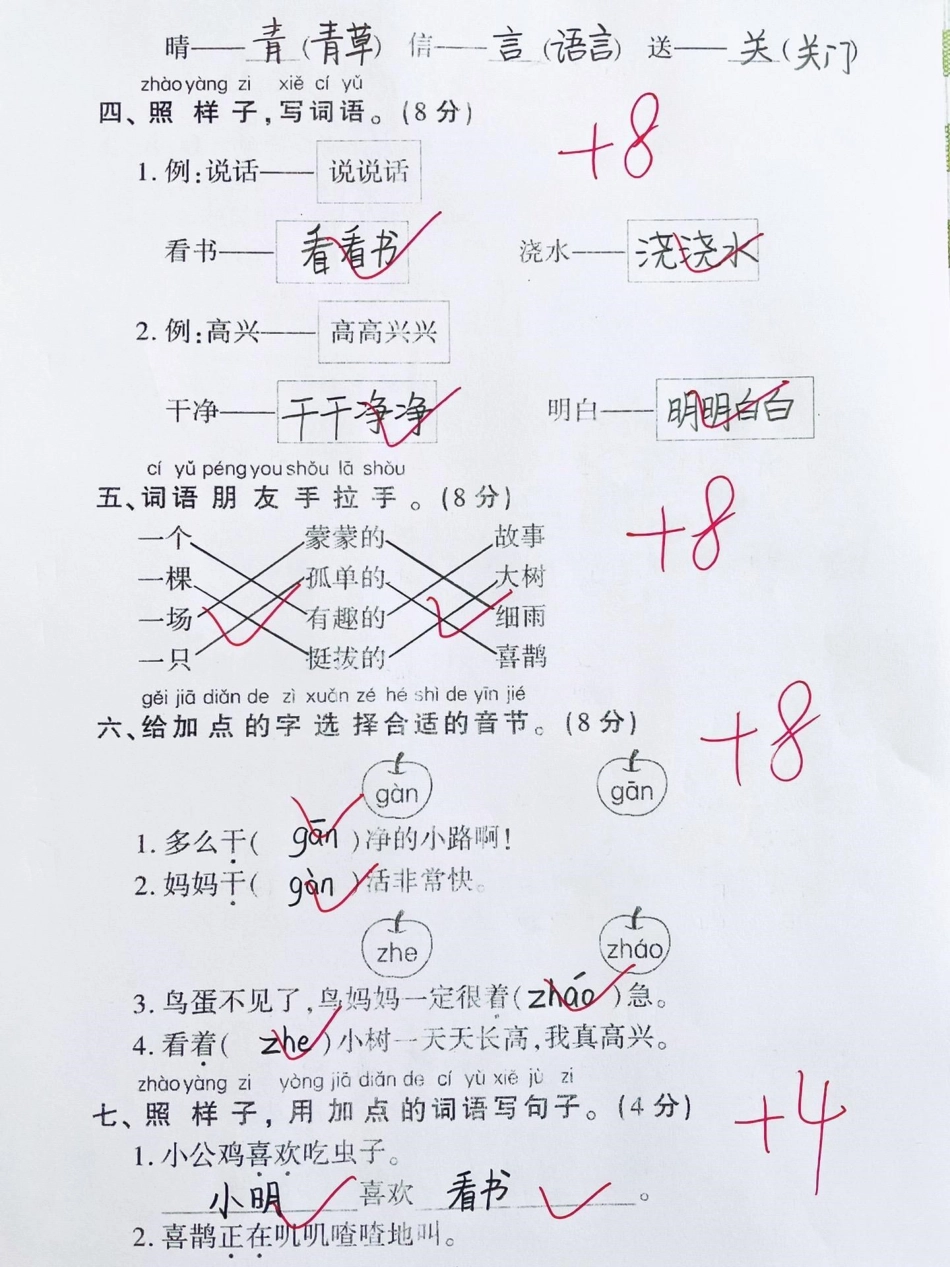 晴——青(青草) 信——言(语言) 送——关(关门)
zhào yàng zi xiě cí yǔ
四、照样子,写词语。(8分) +8
1. 例:说话—— 说说话
看书—— 看看书 浇水—— 浇浇水
2. 例:高兴—— 高高兴兴
干净—— 干干净净 明白—— 明明白白
cí yǔ péng you shǒu lā shòu
五、词语朋友手拉手。(8分) +8
一个 蒙蒙的 故事
一棵 孤单的 大树
一场 有趣的 细雨
一只 挺拔的 喜鹊
gěi jiā diǎn de zì xuǎn zé hé shì de yīn jié
六、给加点的字选择合适的音节。(8分) +8
gàn gān
1. 多么干( gān )净的小路啊!
2. 妈妈干( gàn )活非常快。
zhe zháo
3. 鸟蛋不见了,鸟妈妈一定很着( zháo )急。
4. 看着( zhe )小树一天天长高,我真高兴。
zhào yàng zi yòng jiā diǎn de cí yù xiě jù zi
七、照样子,用加点的词语写句子。(4分) +4
1. 小公鸡喜欢吃虫子。
小明 喜欢 看书 。
2. 喜鹊正在叽叽喳喳地叫。